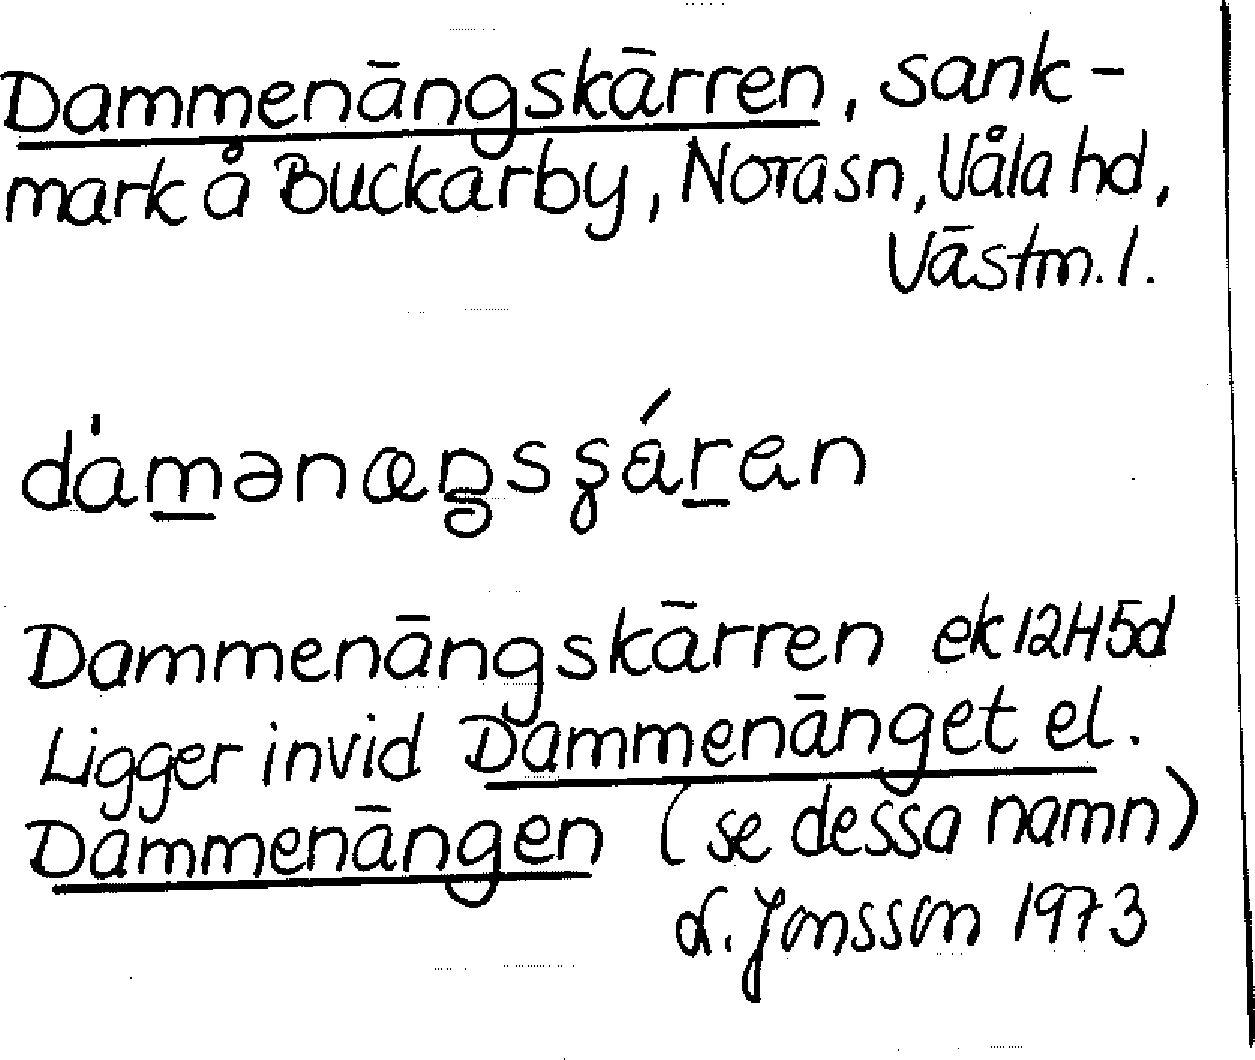 Dammenängskärren, sank-
mark å Buckarby, Nora sn, Våla hd,
Västm. l.
Dammenängskärren ek 12H5d
Ligger invid Dammenänget el.
Dammenängen (se dessa namn)
Jonsson 1973